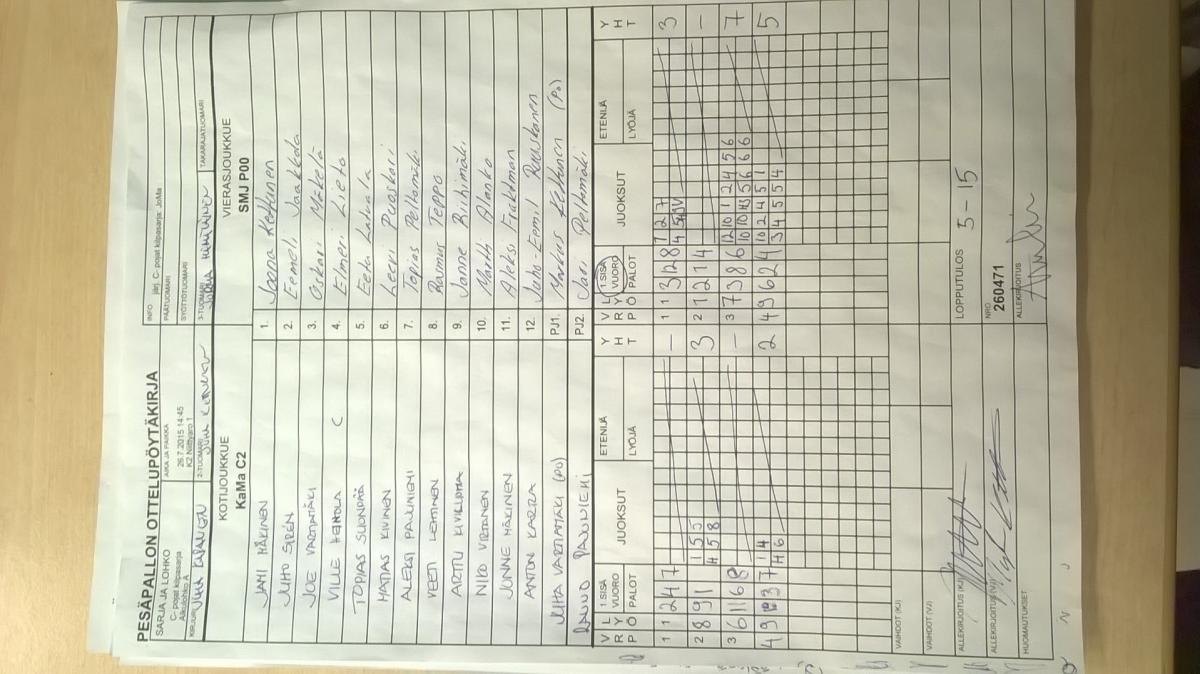 PESÄPALLON OTTELUPÖYTÄKIRJA
SARJA JA LOHKO
C- pojat kilpasarja
Alkulohko A
AIKA JA PAIKKA
26.7.2015 14:45
K2 Niittyaro 1
INFO järj. C- pojat kilpasarja: JoMa
PÄÄTUOMARI
SYÖTTÖTUOMARI
2-TUOMARI
3-TUOMARI
TAKARAJATUOMARI
KOTIJOUKKUE
KaMa C2
VIERASJOUKKUE
SMJ P00
JANI MÄKINEN 1. Jaana Kettunen
JUHO SIRÉN 2. Eemeli Jaakkola
JOE VARTIAMÄKI 3. Oskari Mäkelä
VILLE HEIKKOLA C 4. Elmeri Lieto
TOPIAS SUONPÄÄ 5. Eetu Latvala
MATIAS KIVINEN 6. Leevi Puoskari
ALEKSI PAUNINEN 7. Topias Peltomäki
VEETI LEHTINEN 8. Rasmus Teppo
ARTTU KIVILUOMA 9. Janne Riihimäki
NIKO VIRTANEN 10. Matti Alanko
JONNE MÄKINEN 11. Aleksi Fräktman
ANTON KARRA 12. Juho-Eemil Ruuskanen
JUHA VARTIAMÄKI (PO) PJ1. Markus Kettunen (PO)
RAUNO PJ2. Jari Peltomäki
V R L Y P Ö 1.SISÄ VUORO PALOT JUOKSUT ETENIJÄ LYÖJÄ Y H T
V R L Y P Ö 1.SISÄ VUORO PALOT JUOKSUT ETENIJÄ LYÖJÄ Y H T
1 1 2 4 7 –
1 1 3 12 8 7 1 2 7 3
2 8 9 1 1 5 5 3
4 5 8
2 1 12 1 4 –
3 6 11 6 8 –
3 7 3 8 6 12 10 1 2 4 5 6 7
10 10 5 6 6 6
4 9 10 3 7 1 4 2
4 6
2 4 9 6 2 4 10 2 4 5 1 5
3 4 5 5 4
VAIHDOT (KJ)
VAIHDOT (VJ)
ALLEKIRJOITUS (KJ)
LOPPUTULOS 5 - 15
ALLEKIRJOITUS (VJ)
NRO
260471
HUOMAUTUKSET
ALLEKIRJOITUS